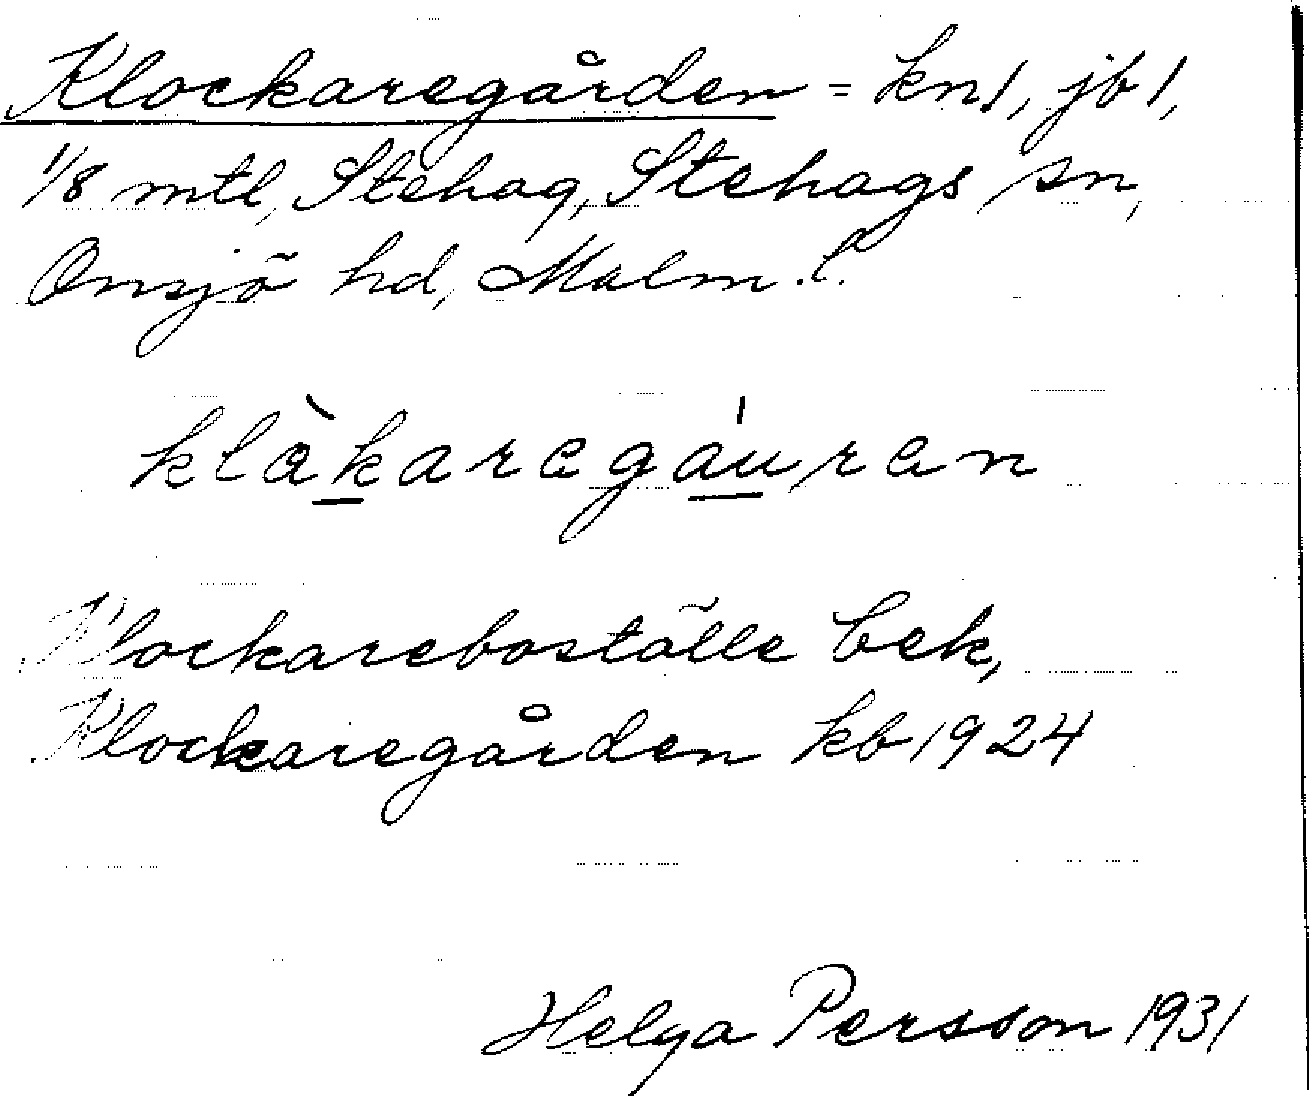 Klockaregården = kn1, jb 1,
1/8 mtl, Stehag, Stehags sn,
Onsjö hd, Malm. l.
klàkaregáuren
Klockareboställe bek,
Klockaregården kb 1924
Helga Persson 1931